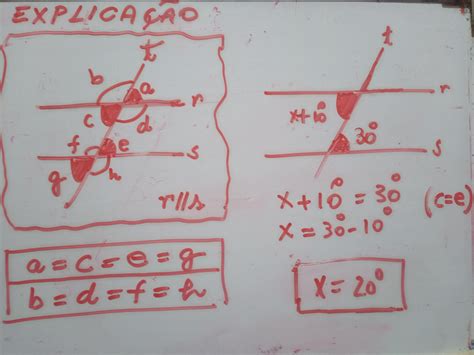 EXPLICAÇÃO
t
b a
r
c d
f e
s
g h
r//s
a = c = e = g
b = d = f = h
t
r
x+10°
30°
s
x+10° = 30° (c=e)
x = 30°-10°
x = 20°